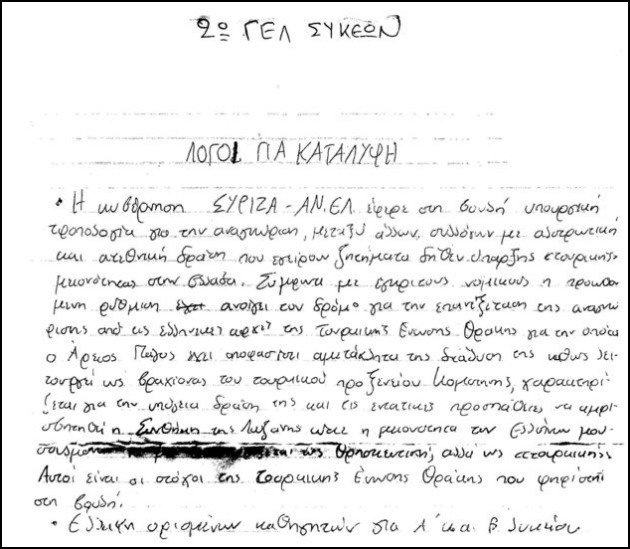 2ο ΓΕΛ ΣΥΚΕΩΝ
ΛΟΓΟΙ ΓΙΑ ΚΑΤΑΛΥΨΗ
• Η κυβέρνηση ΣΥΡΙΖΑ - ΑΝ.ΕΛ έφερε στη βουλή υπουργική
τροπολογία για την αναγνώριση, μεταξύ άλλων, συλλόγων με αλυτρωτική
και ανεθνική δράση που εγείρουν ζητήματα δήθεν ύπαρξης «τουρκικής»
μειονότητας στην Ελλάδα. Σύμφωνα με έγκριτους νομικούς η προωθού-
μενη ρύθμιση ανοίγει τον δρόμο για την επανεξέταση της αναγνώ-
ρισης από τις ελληνικές αρχές της Τουρκικής Ένωσης Θράκης για την οποία
ο Άρειος Πάγος έχει αποφασίσει αμετάκλητα της διάλυση της καθώς λει-
τουργεί ως βραχίονας του τουρκικού προξενείου Κομοτηνής, χαρακτηρί-
ζεται για την υπόγεια δράση της και τις εντατικές προσπάθειες να αμφι-
σβητηθεί η Συνθήκη της Λωζάνης ώστε η μειονότητα των Ελλήνων μου-
σουλμάνων ως θρησκευτική, αλλά ως «τουρκική».
Αυτοί είναι οι στόχοι της Τουρκικής Ένωσης Θράκης που ψηφίστηκε
στη βουλή.
• Έλλειψη ορισμένων καθηγητών για Α' και Β' Λυκείου